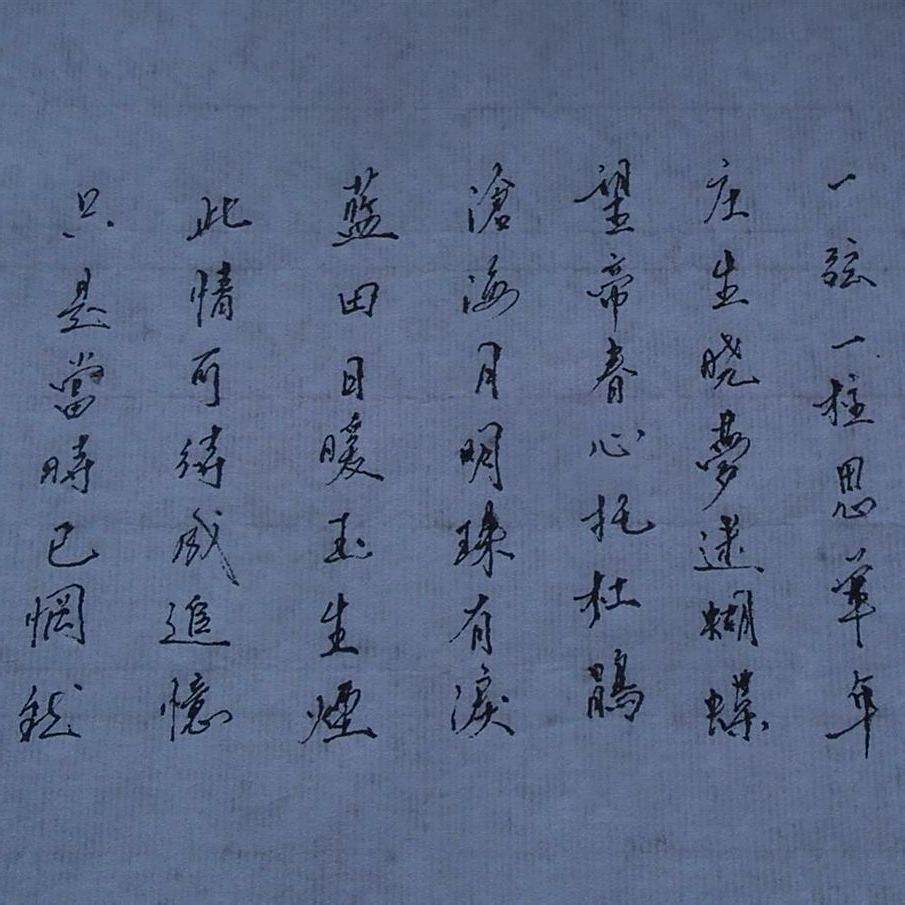 一弦一柱思華年
庄生晓夢迷蝴蝶
望帝春心托杜鵑
滄海月明珠有淚
藍田日暖玉生煙
此情可待成追憶
只是當時已惘然